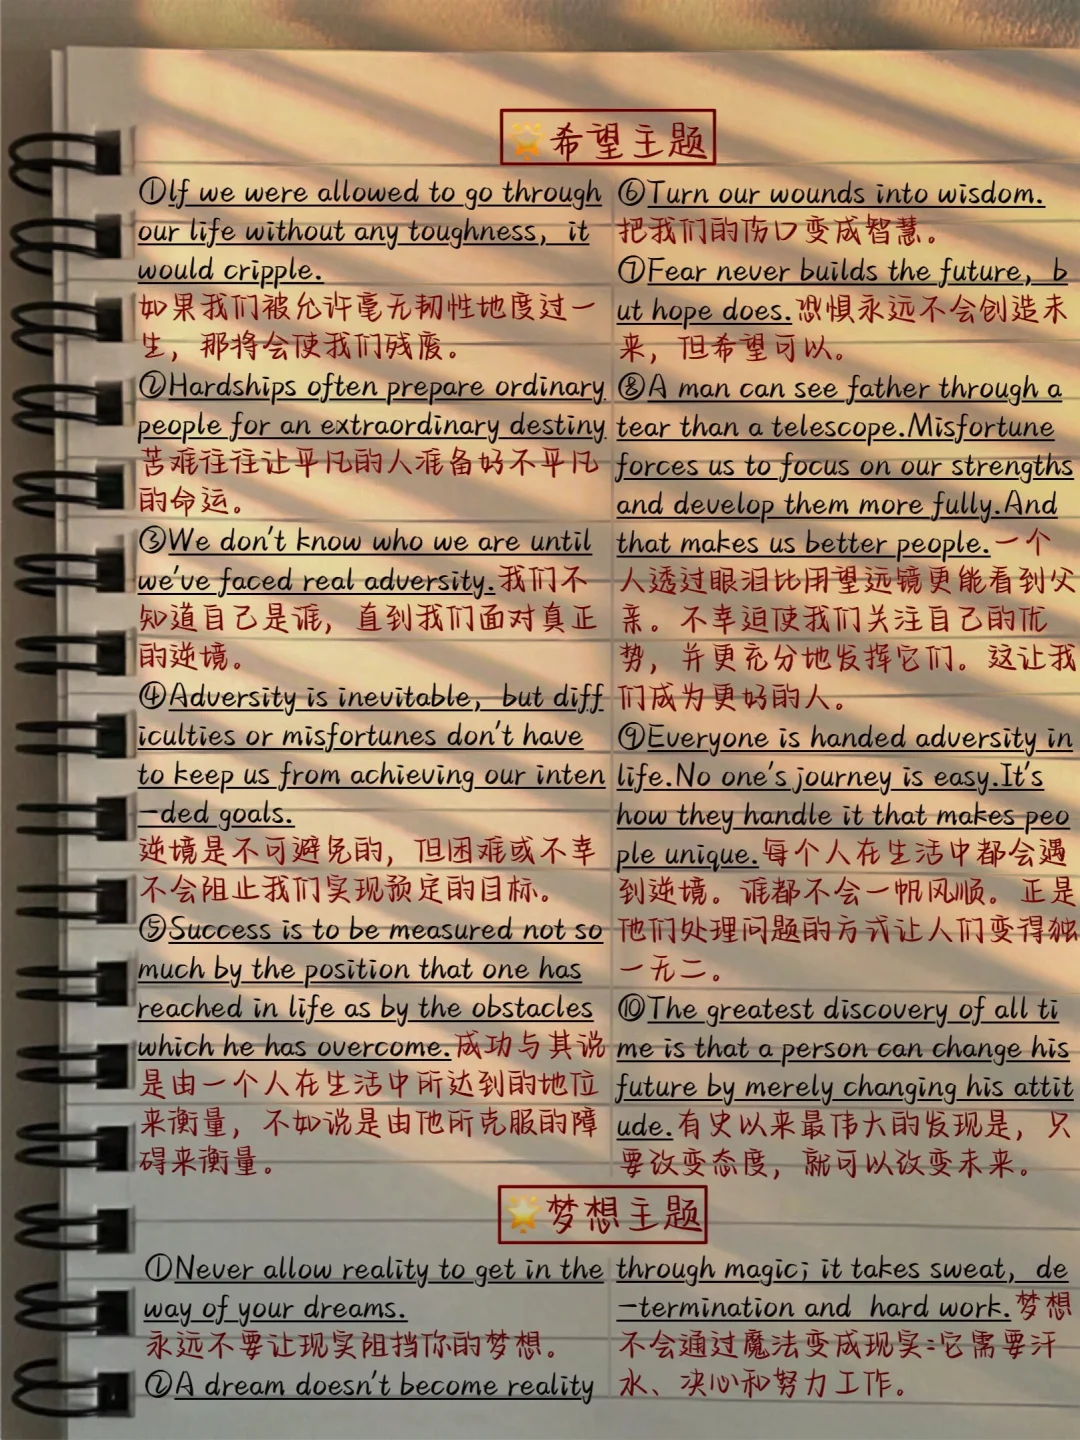 🌟希望主题
①If we were allowed to go through
our life without any toughness, it
would cripple.
如果我们被允许毫无韧性地度过一
生，那将会使我们残废。
②Hardships often prepare ordinary
people for an extraordinary destiny
苦难往往让平凡的人准备好不平凡
的命运。
③We don't know who we are until
we've faced real adversity.我们不
知道自己是谁，直到我们面对真正
的逆境。
④Adversity is inevitable, but diff
iculties or misfortunes don't have
to keep us from achieving our inten
-ded goals.
逆境是不可避免的，但困难或不幸
不会阻止我们实现预定的目标。
⑤Success is to be measured not so
much by the position that one has
reached in life as by the obstacles
which he has overcome.成功与其说
是由一个人在生活中所达到的地位
来衡量，不如说是由他所克服的障
碍来衡量。
⑥Turn our wounds into wisdom.
把我们的伤口变成智慧。
⑦Fear never builds the future, b
ut hope does.恐惧永远不会创造未
来，但希望可以。
⑧A man can see father through a
tear than a telescope.Misfortune
forces us to focus on our strengths
and develop them more fully.And
that makes us better people.一个
人透过眼泪比用望远镜更能看到父
亲。不幸迫使我们关注自己的优
势，并更充分地发挥它们。这让我
们成为更好的人。
⑨Everyone is handed adversity in
life.No one's journey is easy.It's
how they handle it that makes peo
ple unique.每个人在生活中都会遇
到逆境。谁都不会一帆风顺。正是
他们处理问题的方式让人们变得独
一无二。
⑩The greatest discovery of all ti
me is that a person can change his
future by merely changing his attit
ude.有史以来最伟大的发现是，只
要改变态度，就可以改变未来。
🌟梦想主题
①Never allow reality to get in the
way of your dreams.
永远不要让现实阻挡你的梦想。
②A dream doesn't become reality
through magic; it takes sweat, de
-termination and hard work.梦想
不会通过魔法变成现实:它需要汗
水、决心和努力工作。